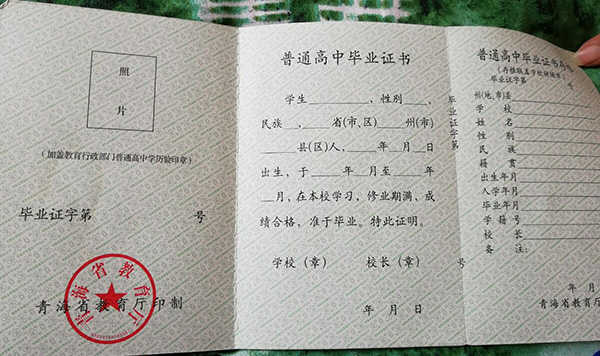 照
片
(加盖教育行政部门普通高中学历验印章)
毕业证字第 号
青海省教育厅印制
青海省教育厅
普通高中毕业证书
学生 , 性别 ,
民族 , 省(市、区) 州(市)
县(区)人, 年 月 日
出生, 于 年 月至 年
月, 在本校学习, 修业期满、成
绩合格, 准于毕业。特此证明。
学校(章) 校长(章)
年 月 日
毕业证字第
号
普通高中毕业证书存
毕业证字第
州(地、市)县
学 校
姓 名
性 别
民 族
籍 贯
出生年月
入学年月
毕业年月
学 籍 号
校 长
备 注:
年 月
青海省教育厅